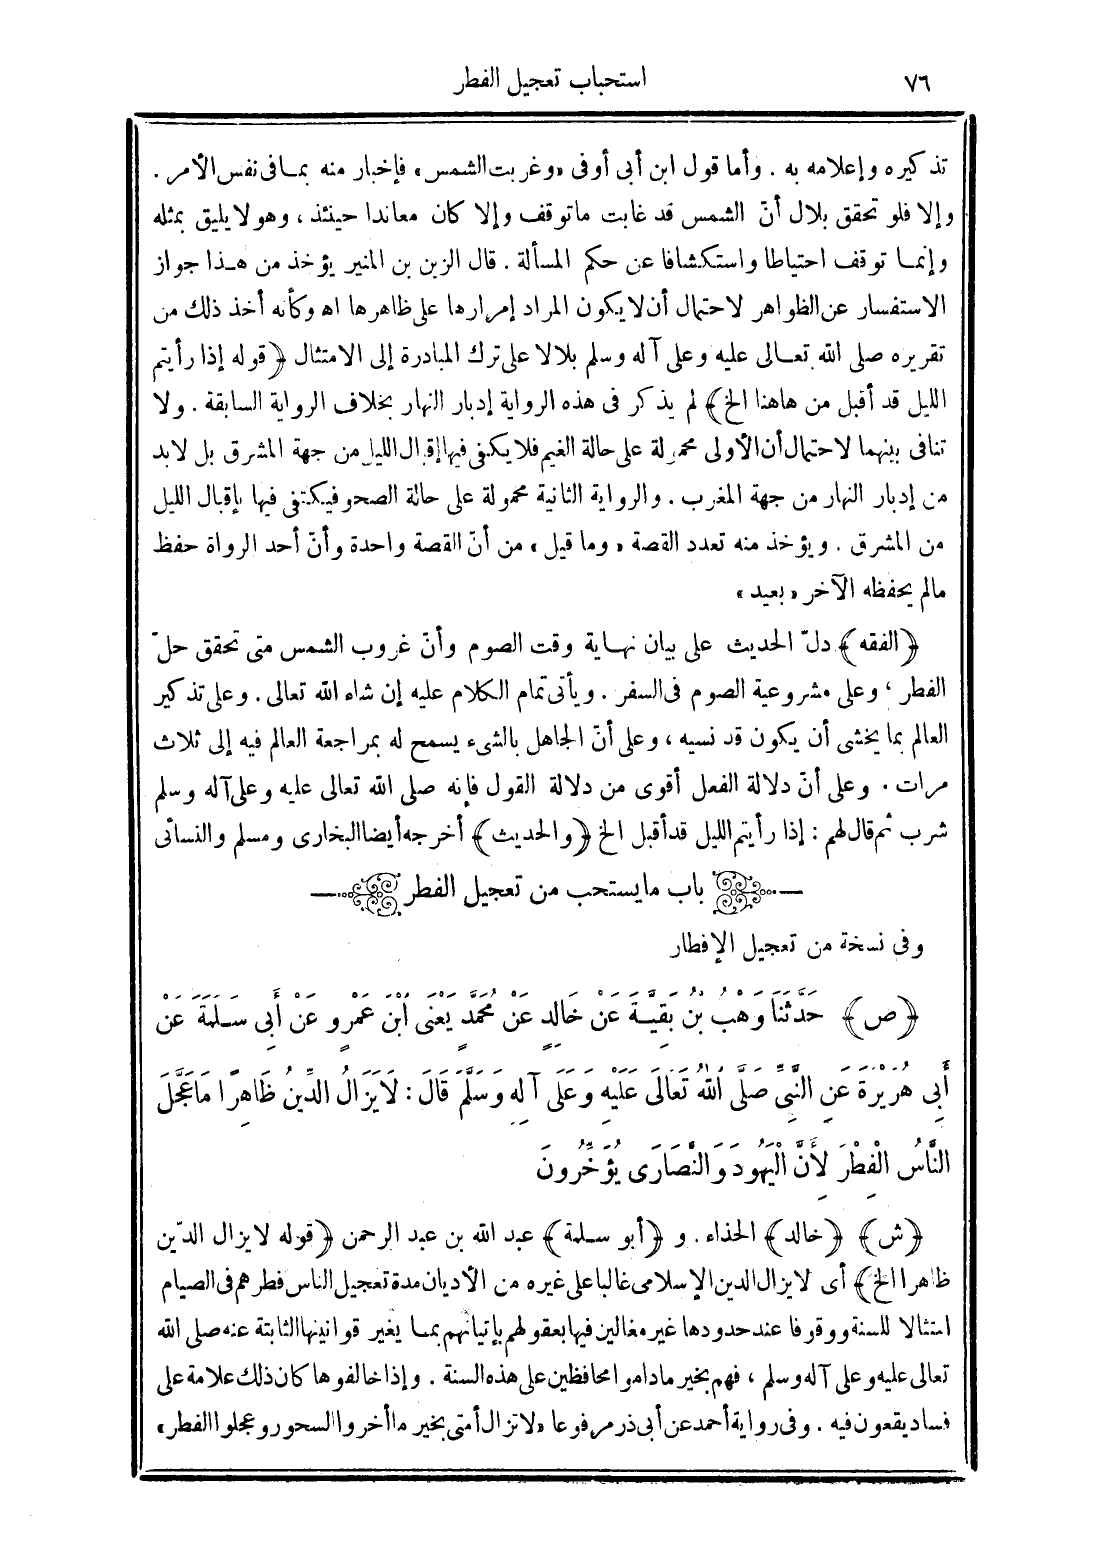 ٧٦
استحباب تعجيل الفطر
تذكيره وإعلامه به . وأما قول ابن أبى أوفى «وغربت الشمس» فإخبار منه بمـا فى نفس الأمر .
وإلا فلو تحقق بلال أنّ الشمس قد غابت ماتوقف وإلا كان معاندا حينئذ ، وهو لا يليق بمثله
وإنمـا توقف احتياطا واستكشافا عن حكم المسألة . قال الزين بن المنير يؤخذ من هـذا جواز
الاستفسار عن الظواهر لاحتمال أن لا يكون المراد إمرارها على ظاهرها اه وكأنه أخذ ذلك من
تقريره صلى الله تعـالى عليه وعلى آله وسلم بلالا على ترك المبادرة إلى الامتثال ﴿قوله إذا رأيتم
الليل قد أقبل من هاهنا الخ﴾ لم يذكر فى هذه الرواية إدبار النهار بخلاف الرواية السابقة . ولا
تنافى بينهما لاحتمال أن الأولى محمولة على حالة الغيم فلا يكفى فيها إقبال الليل من جهة المشرق بل لابد
من إدبار النهار من جهة المغرب . والرواية الثانية محمولة على حالة الصحو فيكتفى فيها بإقبال الليل
من المشرق . ويؤخذ منه تعدد القصة «وما قيل» من أنّ القصة واحدة وأنّ أحد الرواة حفظ
مالم يحفظه الآخر «بعيد»
﴿الفقه﴾ دلّ الحديث على بيان نهـاية وقت الصوم وأنّ غروب الشمس متى تحقق حلّ
الفطر ، وعلى مشروعية الصوم فى السفر . ويأتى تمام الكلام عليه إن شاء الله تعالى . وعلى تذكير
العالم بما يخشى أن يكون قد نسيه ، وعلى أنّ الجاهل بالشىء يسمح له بمراجعة العالم فيه إلى ثلاث
مرات . وعلى أنّ دلالة الفعل أقوى من دلالة القول فإنه صلى الله تعالى عليه وعلى آله وسلم
شرب ثم قال لهم : إذا رأيتم الليل قد أقبل الخ ﴿والحديث﴾ أخرجه أيضا البخارى ومسلم والنسائى
باب ما يستحب من تعجيل الفطر
وفى نسخة من تعجيل الإفطار
﴿ص﴾ حَدَّثَنَا وَهْبُ بْنُ بَقِيَّةَ عَنْ خَالِدٍ عَنْ مُحَمَّدٍ يَعْنِى ابْنَ عَمْرٍو عَنْ أَبِى سَلَمَةَ عَنْ
أَبِى هُرَيْرَةَ عَنِ النَّبِىِّ صَلَّى اللهُ تَعَالَى عَلَيْهِ وَعَلَى آلِهِ وَسَلَّمَ قَالَ : لَا يَزَالُ الدِّينُ ظَاهِرًا مَا عَجَّلَ
النَّاسُ الْفِطْرَ لِأَنَّ الْيَهُودَ وَالنَّصَارَى يُؤَخِّرُونَ
﴿ش﴾ ﴿خالد﴾ الحذاء . و ﴿أبو سـلمة﴾ عبد الله بن عبد الرحمن ﴿قوله لايزال الدّين
ظاهرا الخ﴾ أى لا يزال الدين الإسلامى غالبا على غيره من الأديان مدة تعجيل الناس فطرهم فى الصيام
امتثالا للسنة ووقوفا عند حدودها غير مغالين فيها بعقولهم بإتيانهم بمـا يغير قوانينها الثابتة عنه صلى الله
تعالى عليه وعلى آله وسلم ، فهم بخير ماداموا محافظين على هذه السنة . وإذا خالفوها كان ذلك علامة على
فساد يقعون فيه . وفى رواية أحمد عن أبى ذر مرفوعا «لا تزال أمتى بخير ما أخروا السحور وعجلوا الفطر»